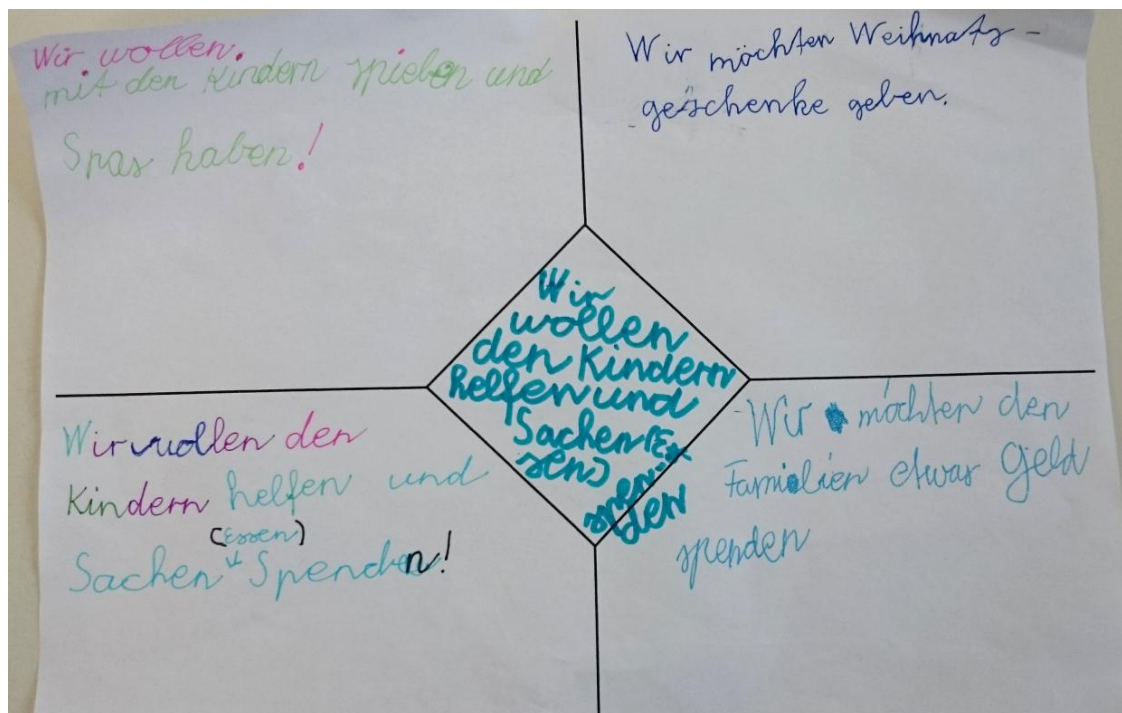 Wir wollen.
mit den Kindern spielen und
Spas haben!
Wir möchten Weihnats-
geschenke geben.
Wir
wollen
den Kindern
helfen und
Sachen (Es-
sen)
spen-
den
Wir wollen den
Kindern helfen und
(Essen)
Sachen Spenden!
Wir möchten den
Familien etwas Geld
spenden